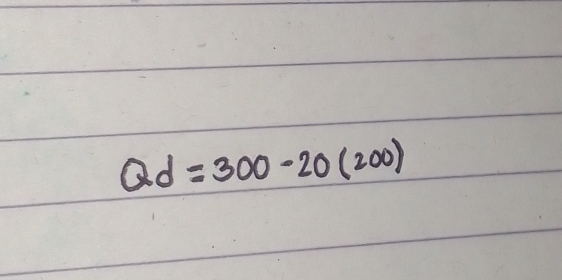 Qd = 300 - 20 (200)